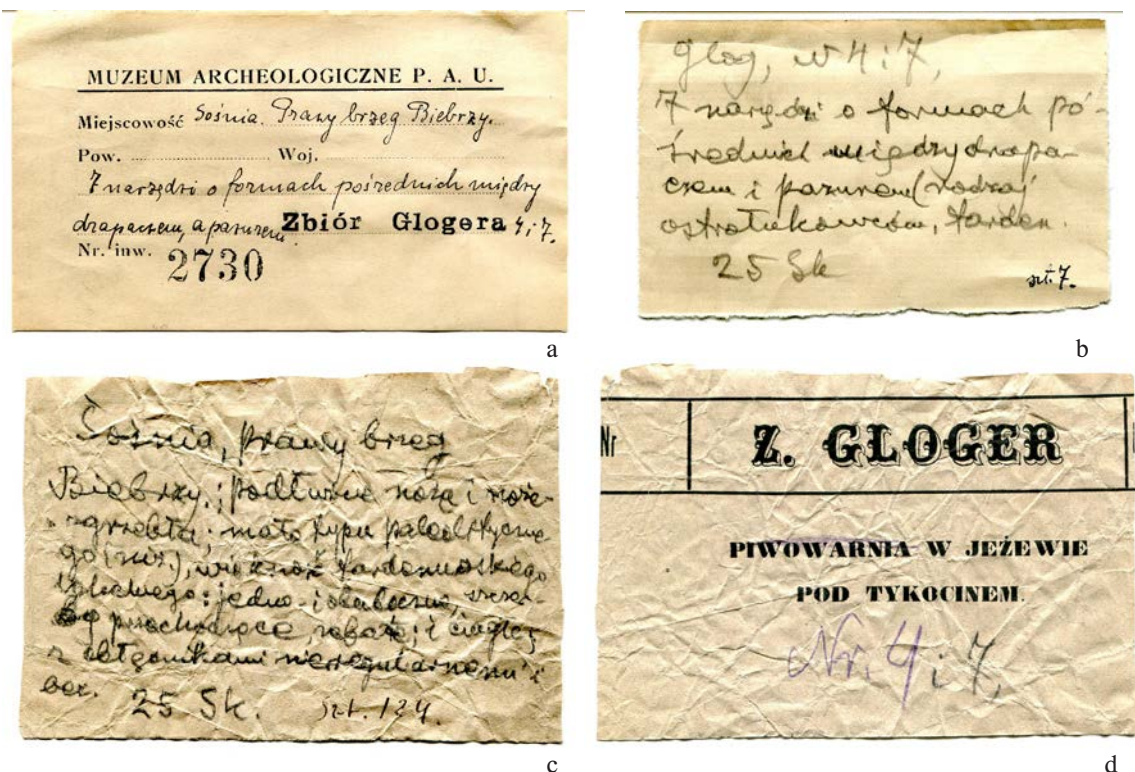 MUZEUM ARCHEOLOGICZNE P. A. U.
Miejscowość Sośnia. Prawy brzeg Biebrzy.
Pow. Woj.
7 narzędzi o formach pośrednich między
drapaczem, a pazurem. Zbiór Glogera 4 i 7.
Nr. inw. 2730
a
Glog, w 4 i 7,
7 narzędzi o formach po-
średnich między drapa-
czem i pazurem (rodzaj
ostrołukowców, tarden.
25 Sk
szt. 7.
b
Sośnia, prawy brzeg
Biebrzy.; podłużne noże i
mało typu paleolityczne
go (niż.), większość tardenuaskiego
jedno i obuboczne,
przechodzące
z nieregularnemi i
bez. 25 Sk. szt. 124.
c
Nr Z. GLOGER
PIWOWARNIA W JEŻEWIE
POD TYKOCINEM.
Nr. 4 i 7,
d